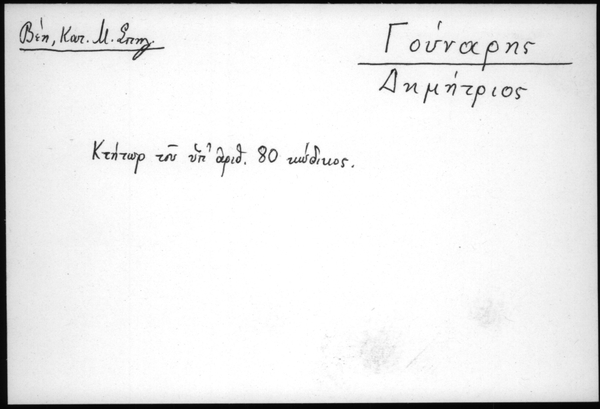 Βέη, Κατ. Μ. Σπηλ.
Γούναρης
Δημήτριος
Κτήτωρ τοῦ ὑπ' ἀριθ. 80 κώδικος.